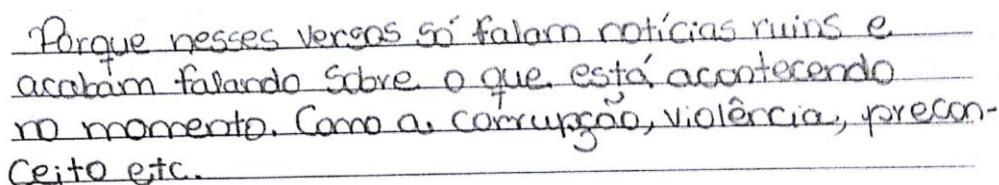 Porque nesses versos só falam notícias ruins e
acabam falando sobre o que está acontecendo
no momento. Como a corrupção, violência, precon-
ceito etc.